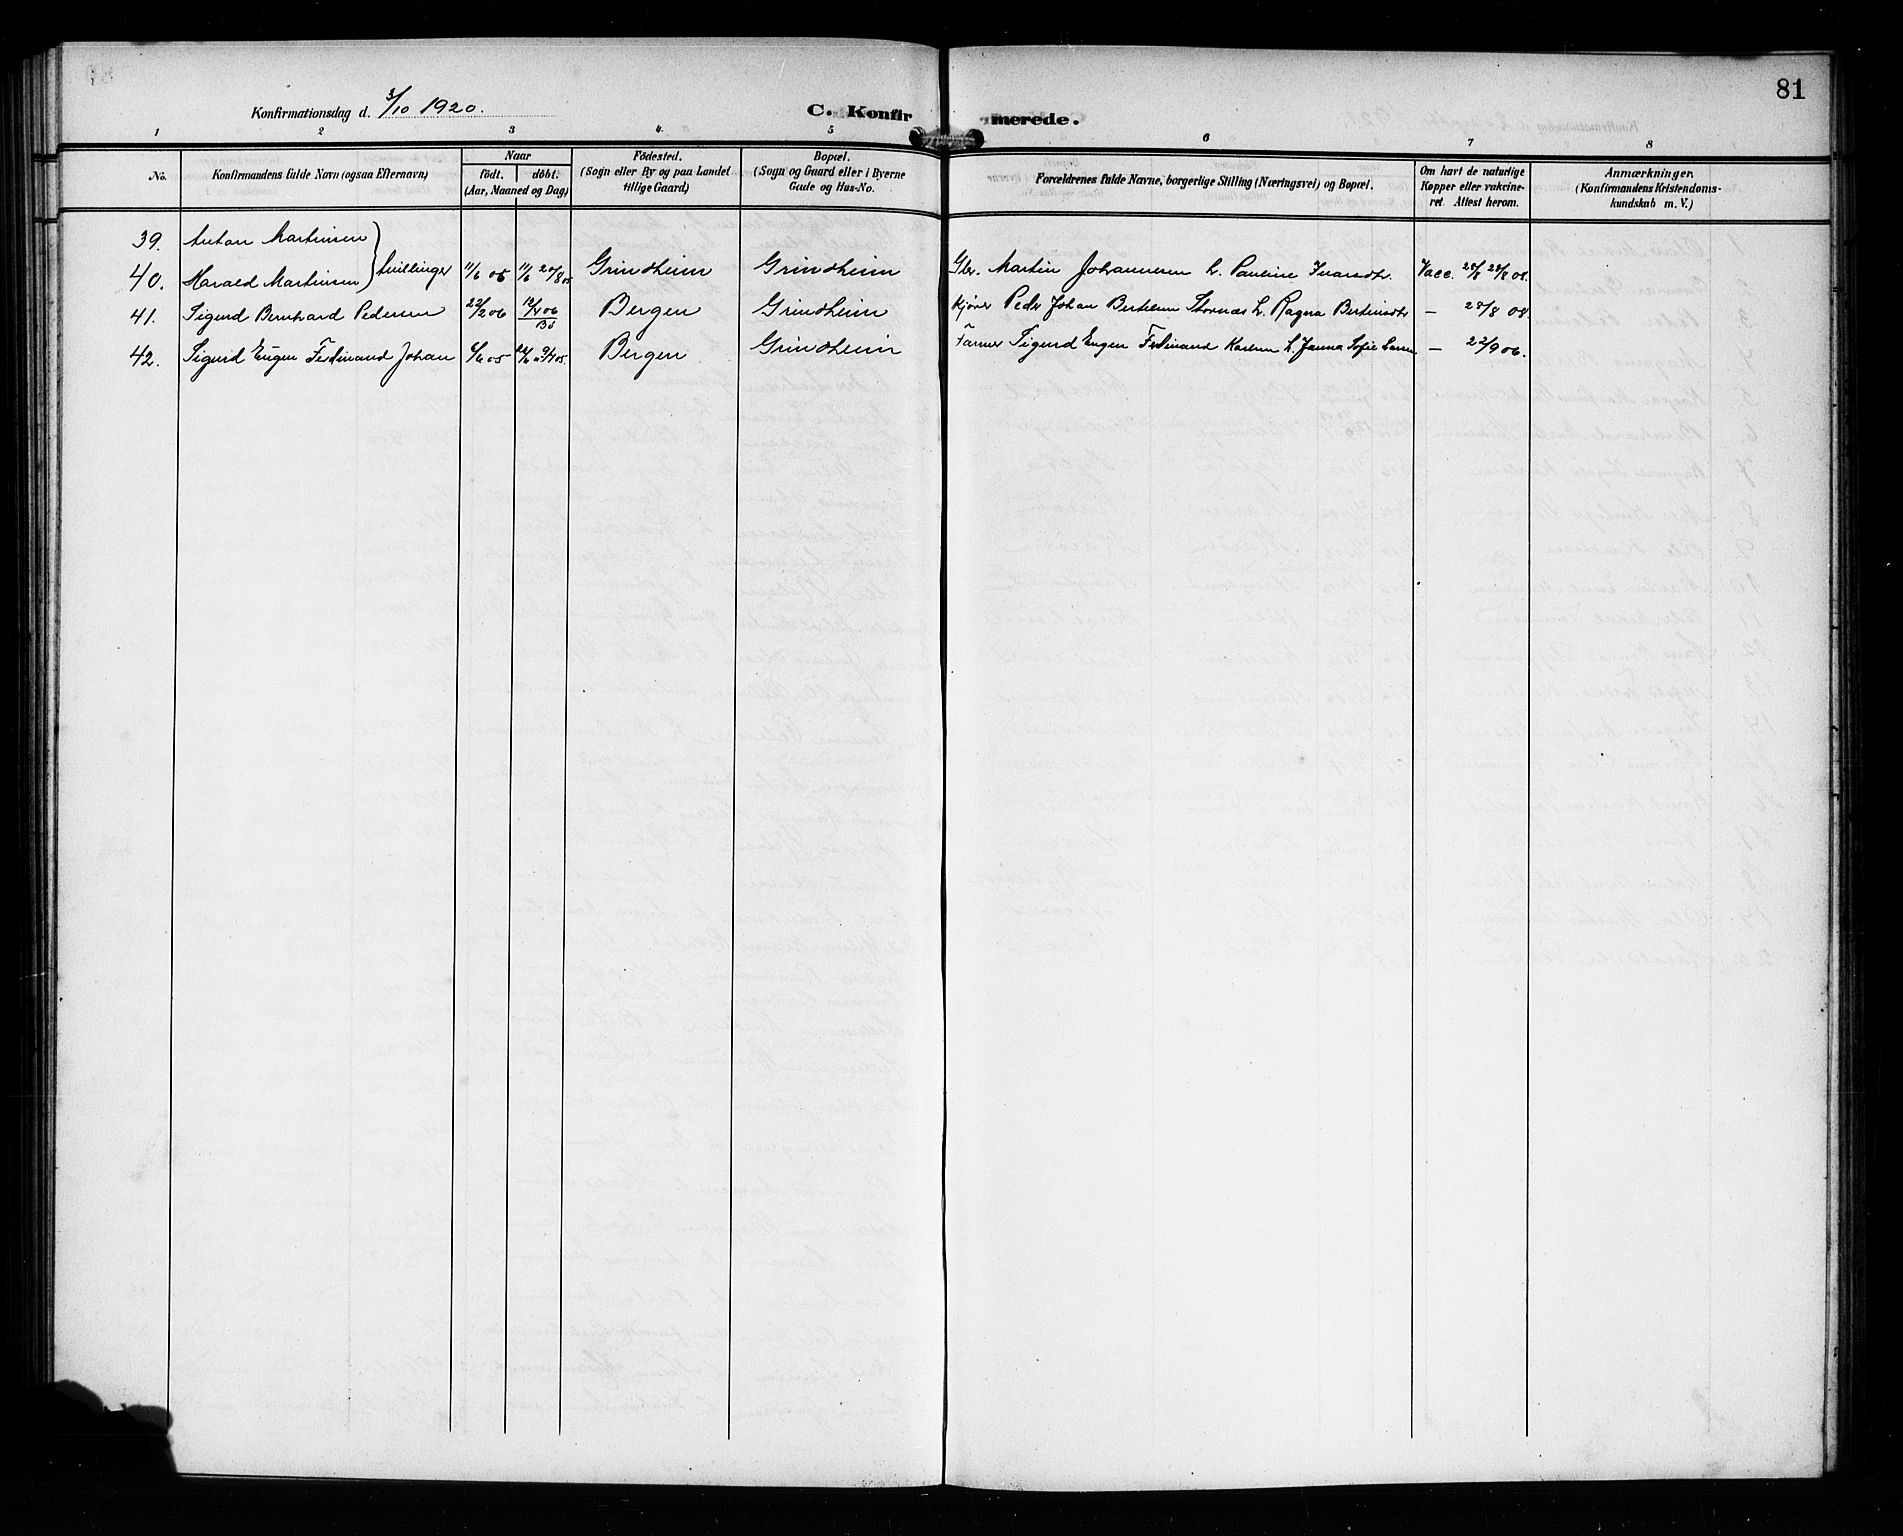 81
Konfirmationsdag d. 3/10 1920.
C. Konfirmerede.
1 2 3 4. 5 6 7 8
No. Konfirmandens fulde Navn (ogsaa Efternavn) Naar födt. döbt. (Aar, Maaned og Dag) Födested. (Sogn eller By og paa Landet tillige Gaard) Bopæl. (Sogn og Gaard eller i Byerne Gade og Hus-No. Forældrenes fulde Navne, borgerlige Stilling (Næringsvei) og Bopæl. Om havt de naturlige Kopper eller vakcineret. Attest herom. Anmærkninger. (Konfirmandens Kristendomskundskab m. V.)
39. Anton Martinsen
40. Harald Martinsen } tvillinger 11/6 05 11/6 20/8 05 Grindheim Grindheim Gbr. Martin Johannesen h. Pauline Ivarsdtr. Vacc. 28/8 28/8 08.
41. Sigurd Bernhard Pedersen 22/2 06 Bergen Grindheim Kjörer Peder Johan Bertelsen Stornæs h. Ragna Bertinsdtr — 28/8 08.
42. Sigurd Eugen Ferdinand Johan 6/6 05 Bergen Grindheim Farver Sigurd Eugen Ferdinand Karlsen h. Janna Sofie Larsen — 22/9 06.